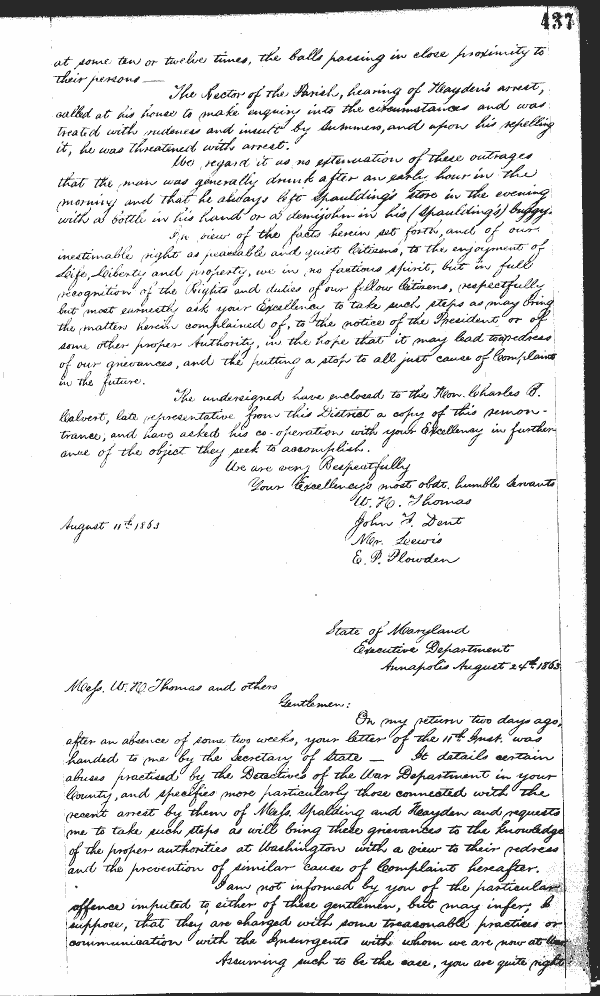 437
at some ten or twelve times, the balls passing in close proximity to
their persons —
The Rector of the Parish, hearing of Hayden's arrest,
called at his house to make enquiry into the circumstances and was
treated with rudeness and insult by Summers, and upon his repelling
it, he was threatened with arrest.
We regard it as no extenuation of these outrages
that the man was generally drunk after an early hour in the
morning and that he always left Spaulding's store in the evening
with a bottle in his hand or a demijohn in his (Spaulding's) buggy.
In view of the facts herein set forth, and of our
inestimable right as peaceable and quiet Citizens, to the enjoyment of
Life, Liberty and property, we in no factious spirit, but in full
recognition of the Rights and duties of our fellow Citizens, respectfully
but most earnestly ask your Excellency to take such steps as may bring
the matters herein complained of, to the notice of the President, or of
some other proper Authority, in the hope that it may lead to redress
of our grievances, and the putting a stop to all just cause of Complaint
in the future.
The undersigned have enclosed to the Hon. Charles B.
Calvert, late representative from this District a copy of this remon-
trance, and have asked his co-operation with your Excellency in further
ance of the object they seek to accomplish.
We are very Respectfully
Your Excellency's most obdt. humble Servants
W. H. Thomas
John F. Dent
Mr. Lewis
E. P. Plowden
August 11th 1863
State of Maryland
Executive Department
Annapolis August 24th 1863
Mess. W. H. Thomas and others
Gentlemen:
On my return two days ago,
after an absence of some two weeks, your letter of the 11th Inst. was
handed to me by the Secretary of State — It details certain
abuses practised by the Detectives of the War Department in your
County, and specifies more particularly those connected with the
recent arrest by them of Mess. Spalding and Hayden and requests
me to take such steps as will bring these grievances to the knowledge
of the proper authorities at Washington with a view to their redress
and the prevention of similar cause of Complaint hereafter.
I am not informed by you of the particular
offence imputed to either of these gentlemen, but may infer, I
suppose, that they are charged with some treasonable practices or
communication with the Insurgents with whom we are now at War
Assuming such to be the case, you are quite right